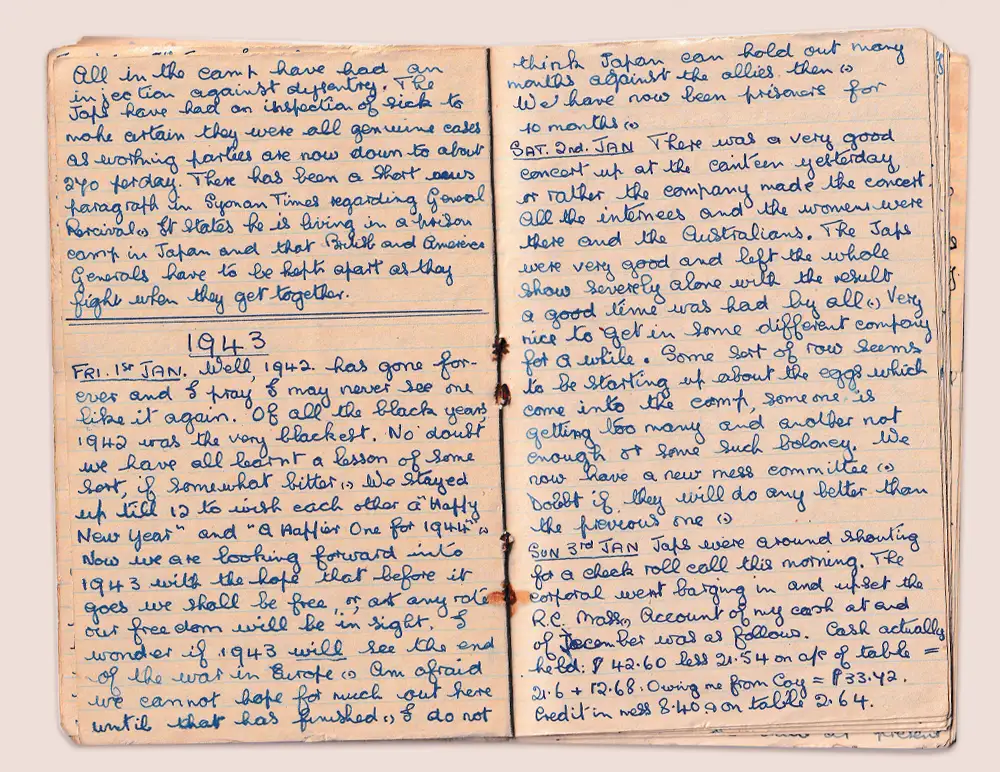 All in the camp have had an
injection against dysentry. The
Japs have had an inspection of sick to
make certain they were all genuine cases
as working parties are now down to about
270 per day. There has been a short news
paragraph in Syonan Times regarding General
Percival. It states he is living in a prison
camp in Japan and that British and American
Generals have to be kept apart as they
fight when they get together.
1943
FRI. 1ST JAN. Well, 1942 has gone for-
ever and I pray I may never see one
like it again. Of all the black years,
1942 was the very blackest. No doubt
we have all learnt a lesson of some
sort, if somewhat bitter. We stayed
up till 12 to wish each other a "Happy
New Year" and "A Happier One for 1944".
Now we are looking forward into
1943 with the hope that before it
goes we shall be free, or at any rate
our freedom will be in sight. I
wonder if 1943 will see the end
of the war in Europe. Am afraid
we cannot hope for much out here
until that has finished. I do not
think Japan can hold out many
months against the allies then.
We have now been prisoners for
10 months.
SAT. 2nd. JAN There was a very good
concert up at the canteen yesterday
or rather the company made the concert.
All the internees and the women were
there and the Australians. The Japs
were very good and left the whole
show severely alone with the result
a good time was had by all. Very
nice to get in some different company
for a while. Some sort of row seems
to be starting up about the eggs which
come into the camp, someone is
getting too many and another not
enough or some such boloney. We
now have a new mess committee.
Doubt if they will do any better than
the previous one.
SUN 3rd JAN Japs were around shouting
for a check roll call this morning. The
corporal went barging in and upset the
R.C. Mass. Account of my cash at end
of December was as follows. Cash actually
held: $42.60 less 21.54 on a/c of table =
21.6 + 12.68. Owing me from Coy = $33.42.
Credit in mess 8.40 on table 2.64.
present